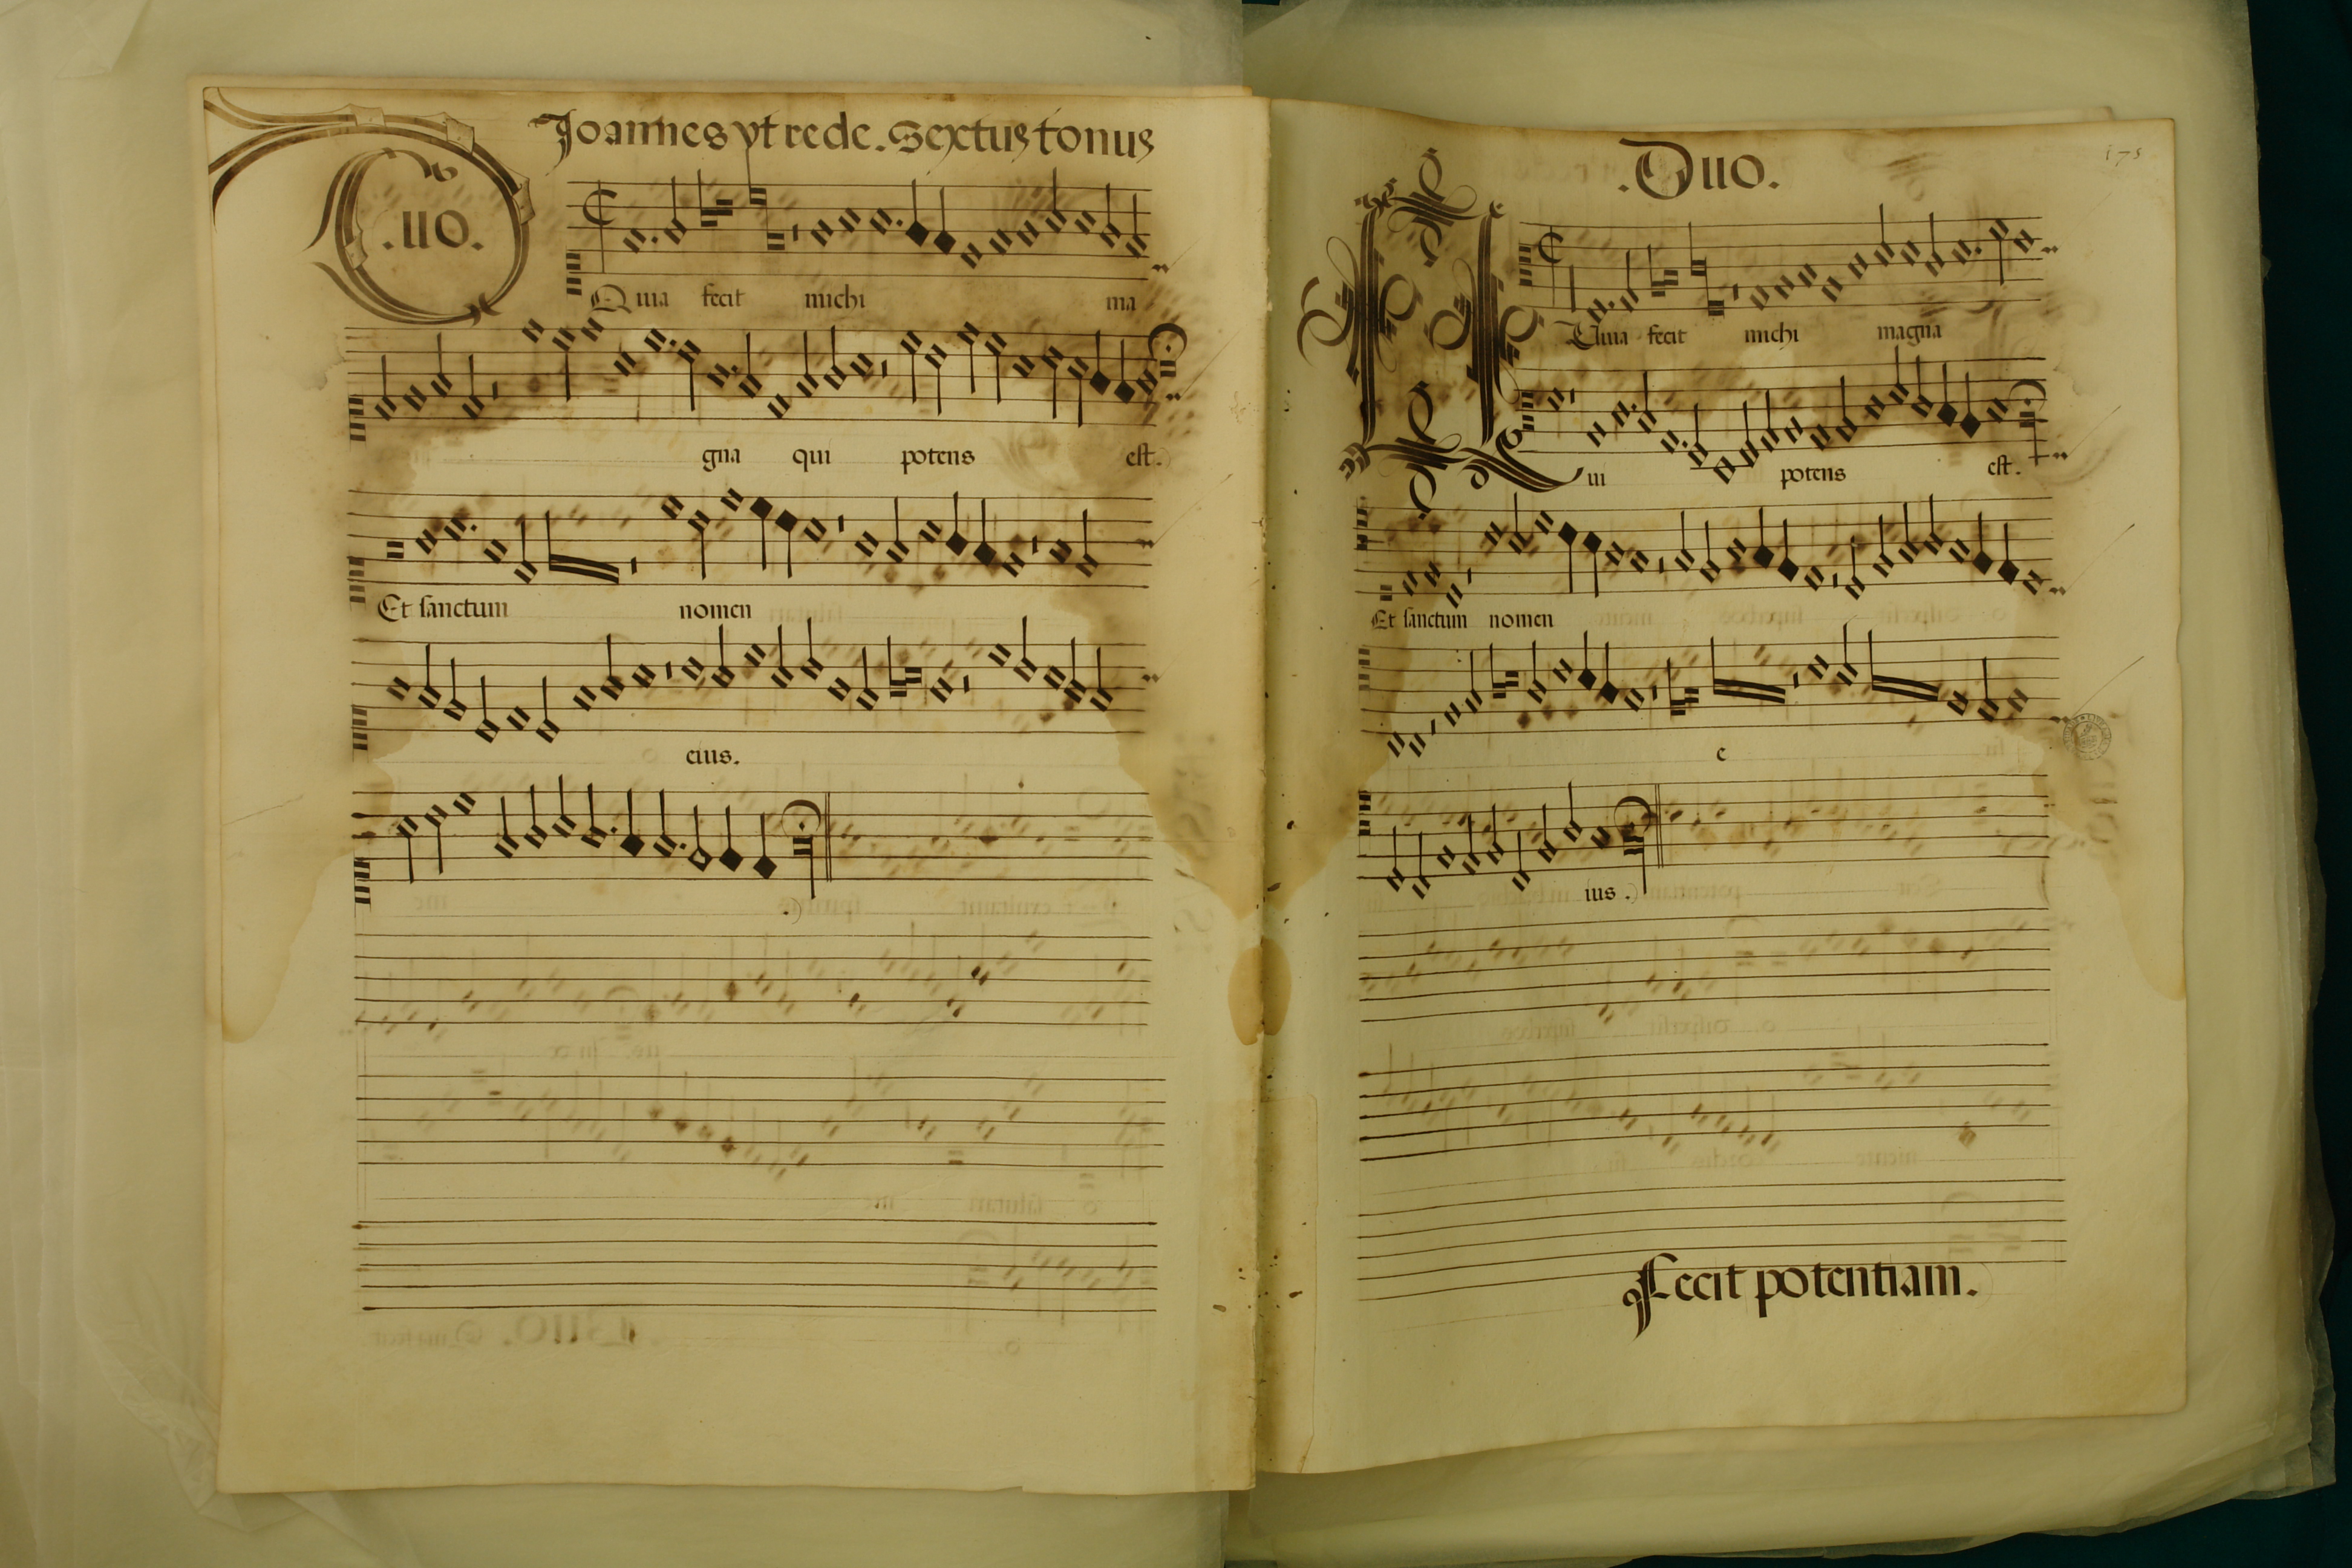 Joannes vt rede. Sextus tonus
.uo.
Quia fecit michi ma
gna qui potens est.
Et sanctum nomen
eius.
.Duo.
175
Quia fecit michi magna
Qui potens est.
Et sanctum nomen
e
ius.
Fecit potentiam.